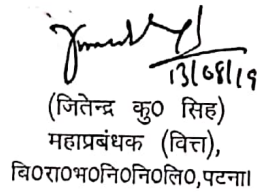 13/08/19
(जितेन्द्र कु0 सिंह)
महाप्रबंधक (वित्त),
बि0रा0भ0नि0नि0लि0,पटना।